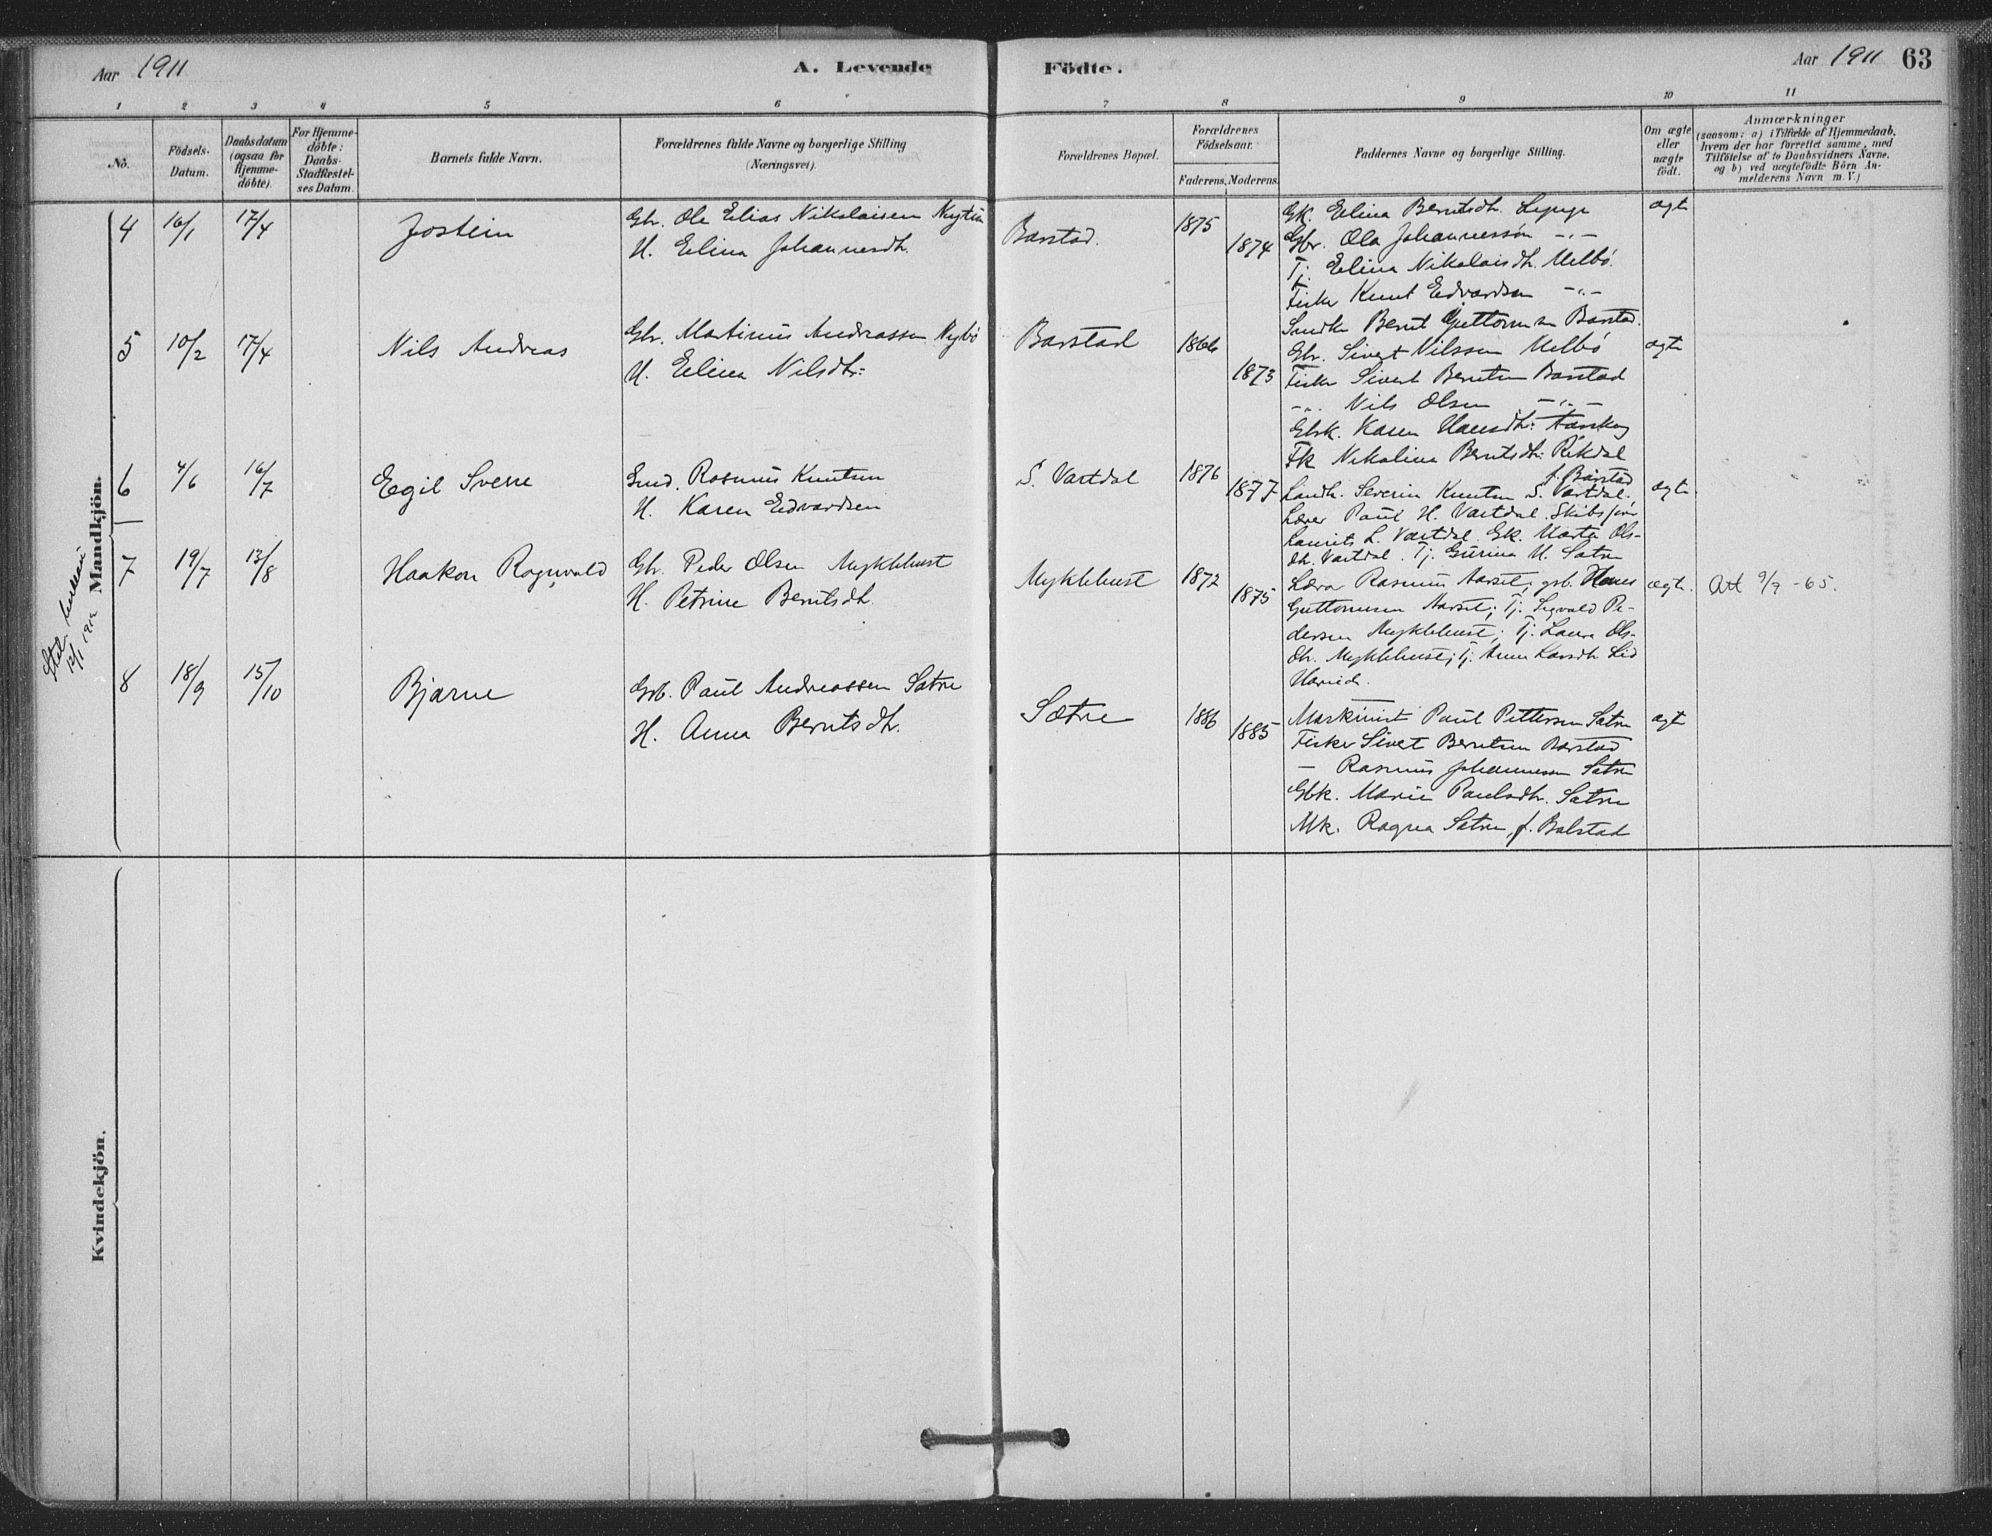 Aar 1911
A. Levende Födte.
Aar 1911 63
1 2 3 4 5 6 7 8 9 10 11
No.
Födsels-
Datum.
Daabsdatum
(ogsaa for
Hjemme-
döbte).
For Hjemme-
döbte:
Daabs-
Stadfæstel-
ses Datum.
Barnets fulde Navn.
Forældrenes fulde Navne og borgerlige Stilling
(Næringsvei).
Forældrenes Bopæl.
Forældrenes
Födselsaar.
Faderens, Moderens.
Faddernes Navne og borgerlige Stilling.
Om ægte
eller
uægte
födt.
Anmærkninger
(saasom: a) i Tilfælde af Hjemmedaab,
hvem der har forrettet samme, med
Tilföielse af to Daabsvidners Navne,
og b) ved uægtefödte Börn An-
melderens Navn m. V.)
Mandkjön.
12/1 1912
4 16/1 17/4 Jostein
Gbr. Ole Elias Nikolaisen
H. Elina Johannesdtr.
Barstad. 1875 1874
Gk. Elina Berntsdtr.
Gbr. Ola Johannessøn -"-
Tj. Elina Nikolaisdtr. Melbø.
Fisker Knut Edvardsen -"-
ægte
5 10/2 17/4 Nils Andreas
Gbr. Martinus Andreassen Nybø
H. Elina Nilsdtr:
Barstad 1866 1873
Bernt Guttormsen Barstad.
Gbr. Sivert Nilssen Melbø
Fisker Sivert Berntsen Barstad
-"- Nils Olsen -"-
Gbk. Karen Hansdtr:
Fk Nikolina Berntsdtr: Rikdal
f. Barstad
ægte
6 4/6 16/7 Egil Sverre
Smed. Rasmus Knutsen
H. Karen Edvardsen
S. Vartdal 1876 1877
Landh. Severin Knutsen S. Vartdal.
Lærer Paul H. Vartdal. Skibsfører
Laurits L. Vartdal. Gk. Marta Ols-
dtr. Vartdal. Tj. Gurina H. Sætre
ægte
7 19/7 13/8 Haakon Ragnvald
Gbr. Peder Olsen Myklebust
H. Petrine Berntsdtr.
Myklebust 1872 1875
Lærer Rasmus Aarset; grb. Hans
Guttormsen Aarset; Tj. Sigvald Pe-
dersen Myklebust; Tj. Laura Ols-
dtr. Myklebust; Tj. Anna Larsdtr Lid
Hareide.
ægte. Att 9/9 -65.
8 18/9 15/10 Bjarne
Grb. Paul Andreassen Sætre
H. Anna Berntsdtr.
Sætre 1886 1885
Maskinist Paul Pettersen Sætre
Fisker Sivert Berntsen Barstad
- Rasmus Johannessen Sætre
Gbk. Marie Paulsdtr. Sætre
Mk. Ragna Sætre, f. Balstad
ægte
Kvindekjön.